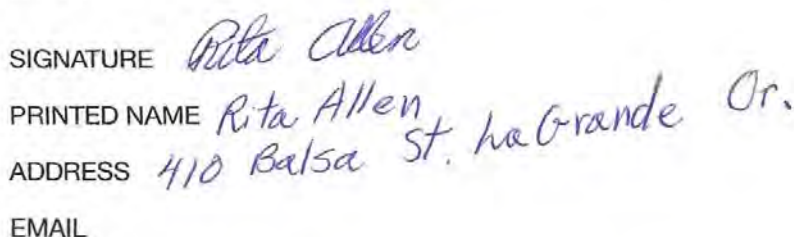 SIGNATURE Rita Allen
PRINTED NAME Rita Allen
ADDRESS 410 Balsa St. LaGrande Or.
EMAIL